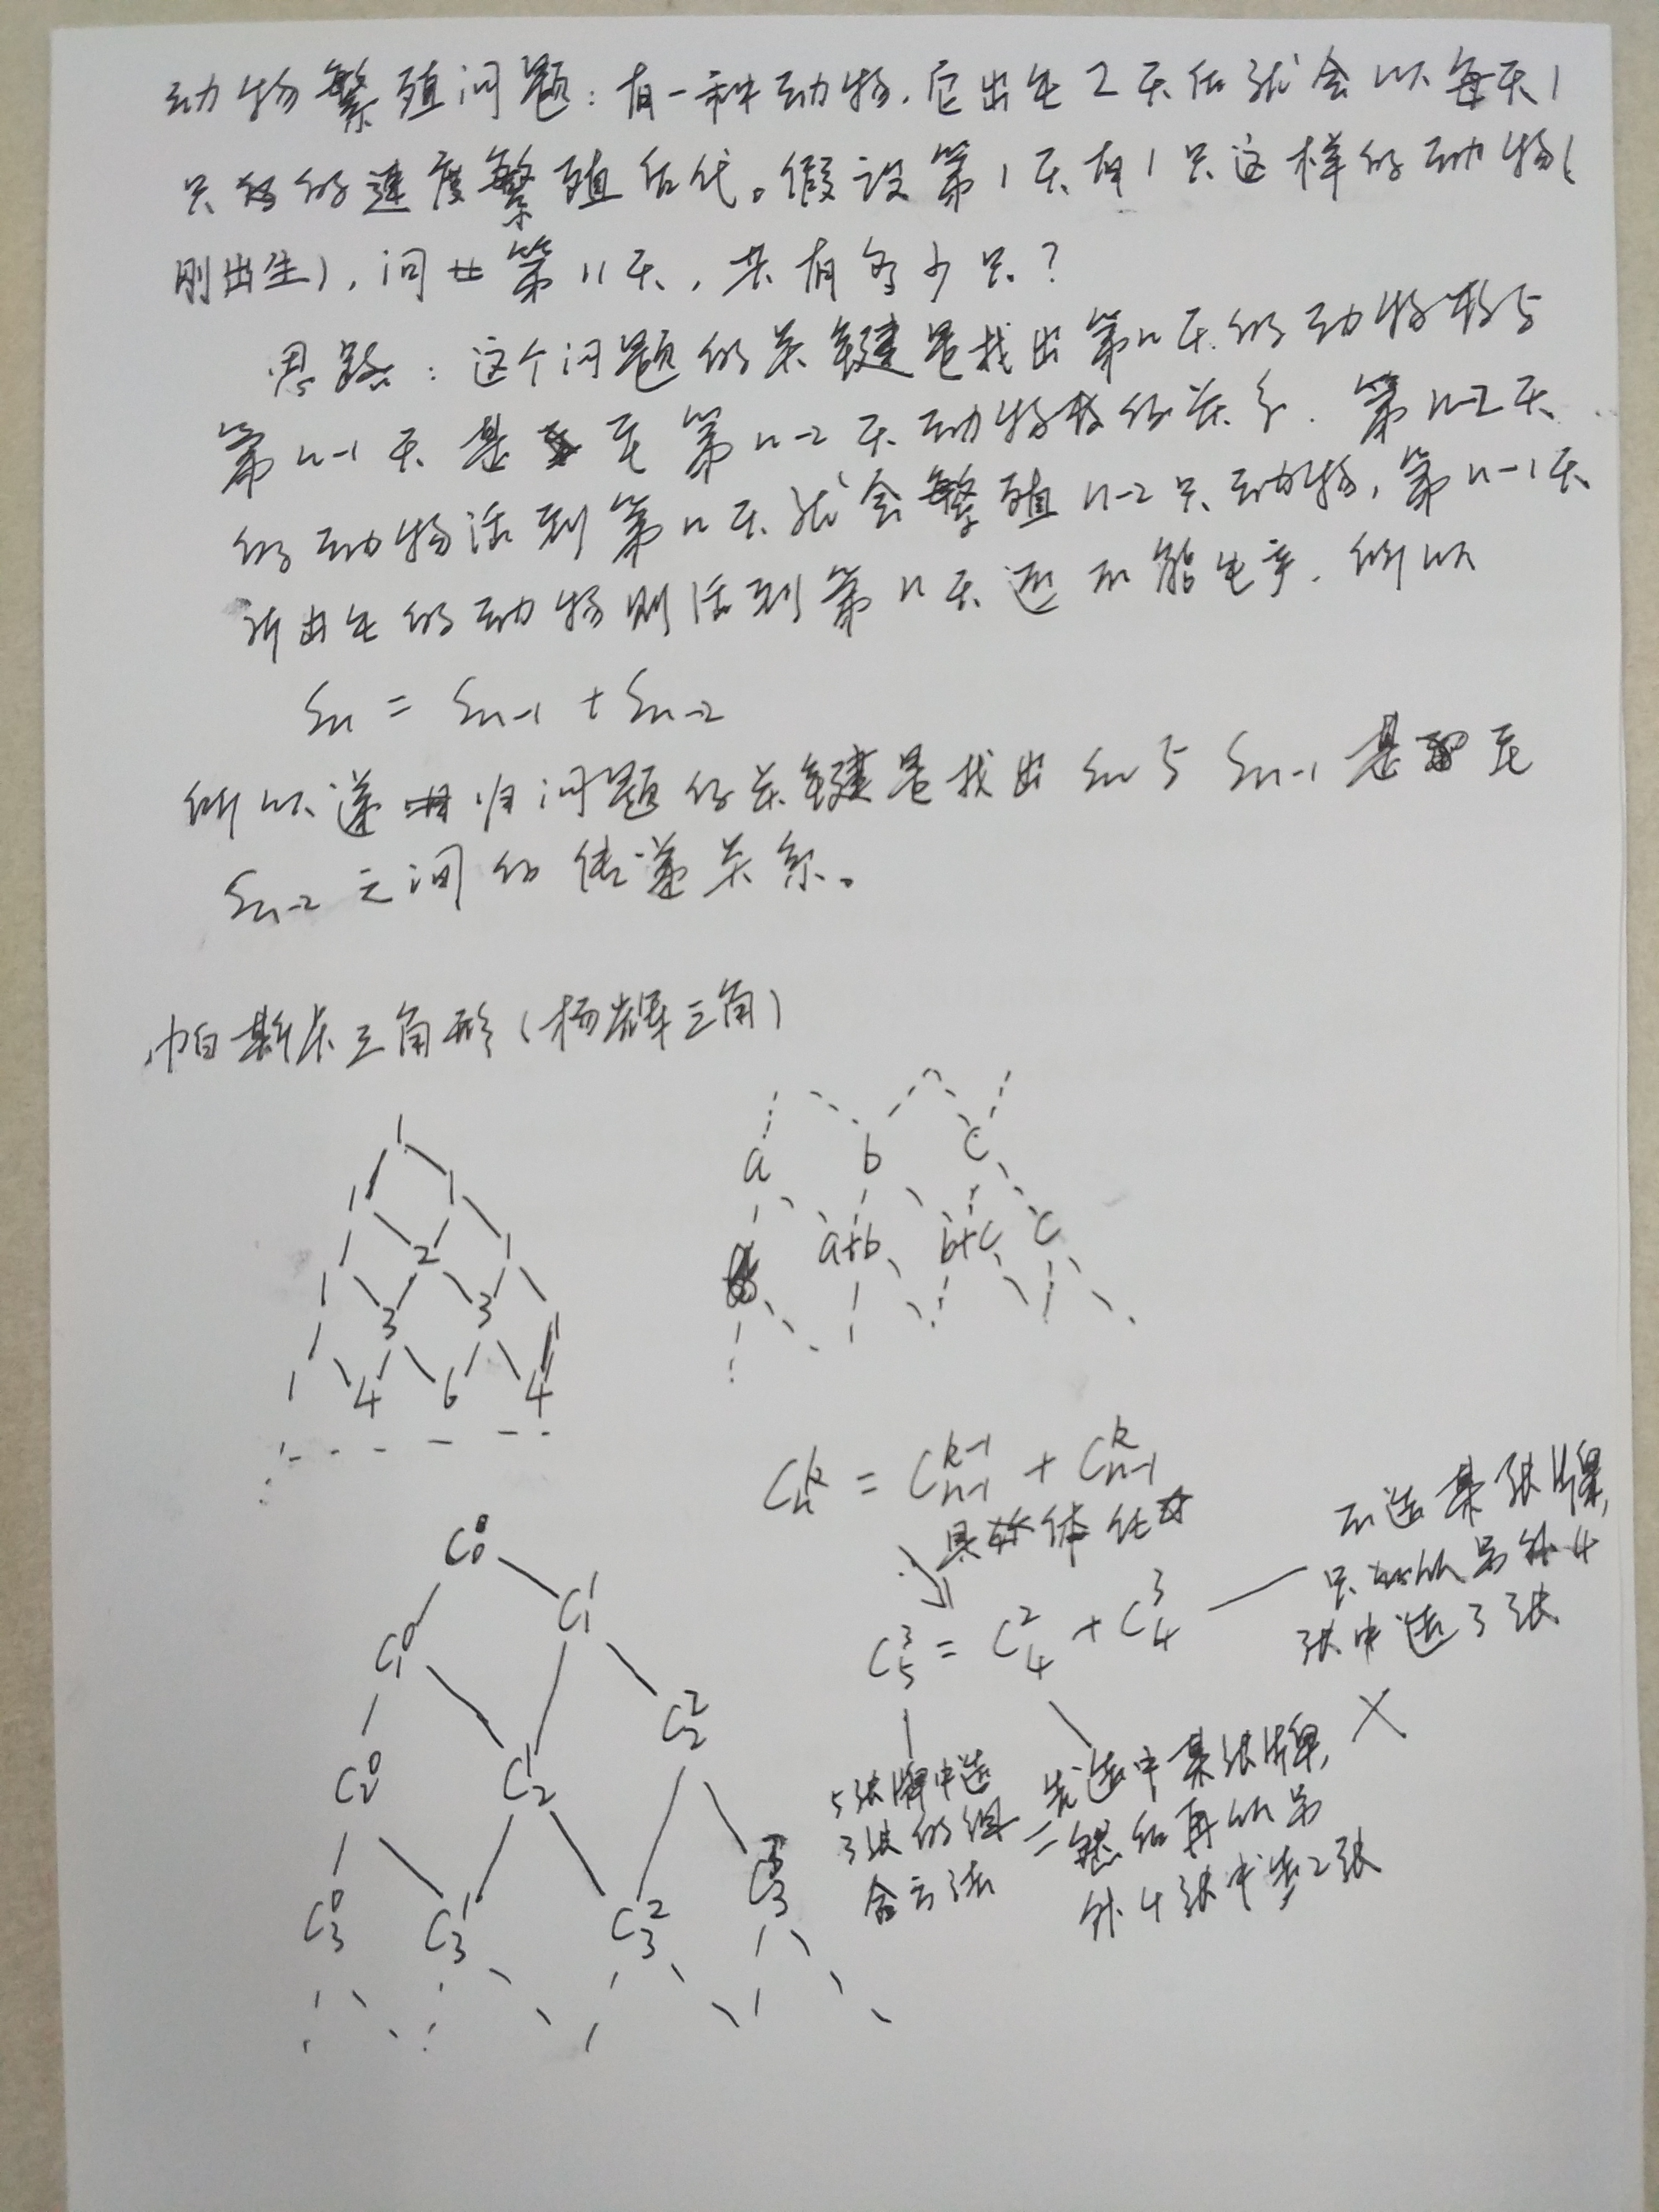 动物繁殖问题：有一种动物，它出生2天后就会以每天1
只的速度繁殖后代。假设第1天有1只这样的动物（
刚出生），问第11天，共有多少只？
思路：这个问题的关键是找出第n天的动物数与
第n-1天甚至第n-2天动物数的关系．第n-2天
的动物活到第n天就会繁殖n-2只动物，第n-1天
所出生的动物则活到第n天还不能生产．所以
Sn = Sn-1 + Sn-2
所以递归问题的关键是找出Sn与Sn-1甚至
Sn-2之间的传递关系。
帕斯卡三角形（杨辉三角）
1
1 1
1 2 1
1 3 3 1
1 4 6 4
a b c
a+b b+c c
Cₙᵏ = Cₙ₋₁ᵏ⁻¹ + Cₙ₋₁ᵏ
具体化
C₅³ = C₄² + C₄³
不选某张牌,
只从另外4
张中选3张
5张牌中选
3张的组
合方法
先选中某张牌,
然后再从另
外4张中选2张
C₀⁰
C₁⁰ C₁¹
C₂⁰ C₂¹ C₂²
C₃⁰ C₃¹ C₃² C₃³